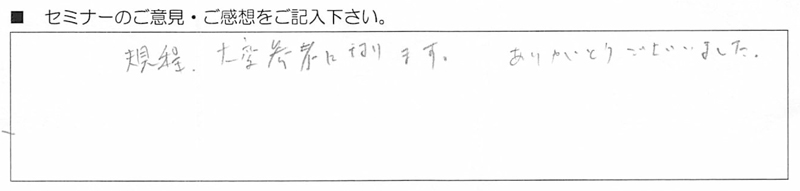 ■ セミナーのご意見・ご感想をご記入下さい。
規程、大変参考に切ります。 ありがとうございました。